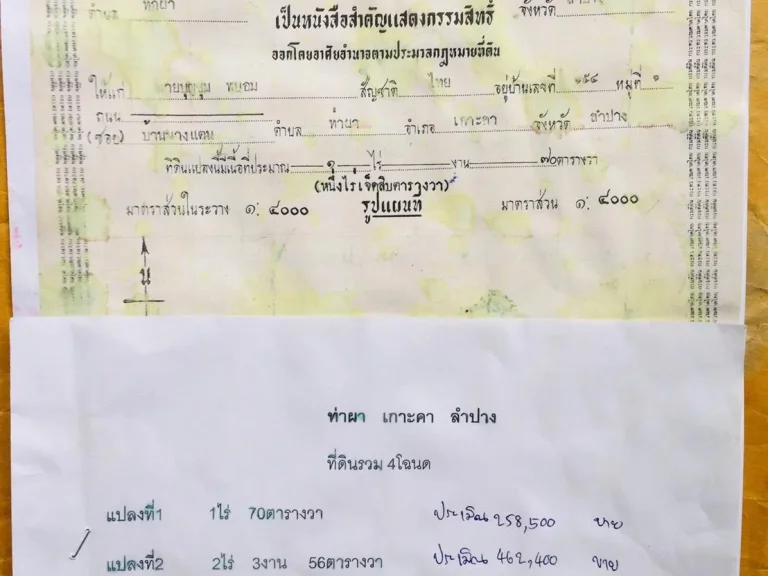 ตำบล ท่าผา จังหวัด ลำปาง
เป็นหนังสือสำคัญแสดงกรรมสิทธิ์
ออกโดยอาศัยอำนาจตามประมวลกฎหมายที่ดิน
ให้แก่ สัญชาติ ไทย อยู่บ้านเลขที่ ๑๕๔ หมู่ที่ ๑
ถนน
(ซอย) บ้านนางแตน ตำบล ท่าผา อำเภอ เกาะคา จังหวัด ลำปาง
ที่ดินแปลงนี้มีเนื้อที่ประมาณ ๑ ไร่ งาน ๗๐ ตารางวา
(หนึ่งไร่เจ็ดสิบตารางวา)
มาตราส่วนในระวาง ๑: ๔๐๐๐ รูปแผนที่ มาตราส่วน ๑: ๔๐๐๐
น
ท่าผา เกาะคา ลำปาง
ที่ดินรวม 4โฉนด
แปลงที่1 1ไร่ 70ตารางวา ประเมิน 258,500 บาท
แปลงที่2 2ไร่ 3งาน 56ตารางวา ประเมิน 462,400 บาท